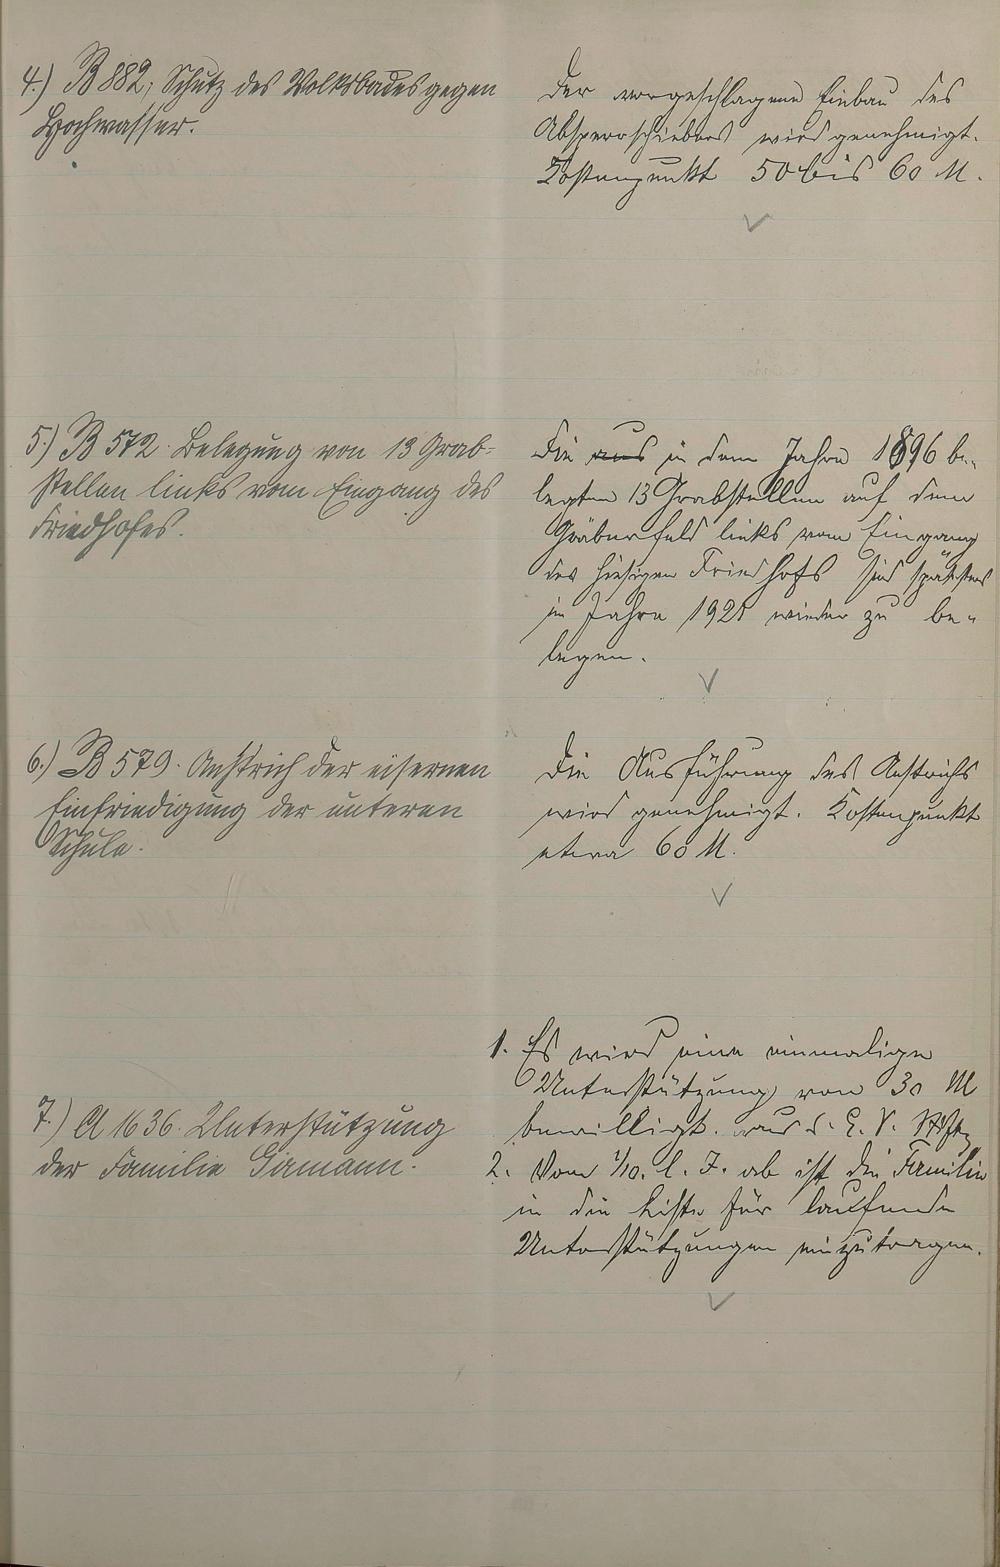 4.) B 882, Schutz des Volksbades gegen
Hochwasser.
Der vorgeschlagene Einbau des
Absperrschiebers wird genehmigt.
Kostenpunkt 50 bis 60 M.
5.) B 572. Belegung von 13 Grab-
stellen links vom Eingang des
Friedhofes.
Die aus in dem Jahre 1896 be-
legten 13 Grabstellen auf dem
Gräberfeld links vom Eingang
des hiesigen Friedhofs sind spätestens
im Jahre 1921 wieder zu be-
legen.
6.) B 579. Anstrich der eisernen
Einfriedigung der unteren
Schule.
Die Ausführung des Anstrichs
wird genehmigt. Kostenpunkt
etwa 60 M.
7.) A 1636. Unterstützung
der Familie Girmann.
1. Es wird eine einmalige
Unterstützung von 30 M
bewilligt. aus d. E. V.
2. Vom 1/10. l. J. ab ist die Familie
in die Liste für laufende
Unterstützungen einzutragen.